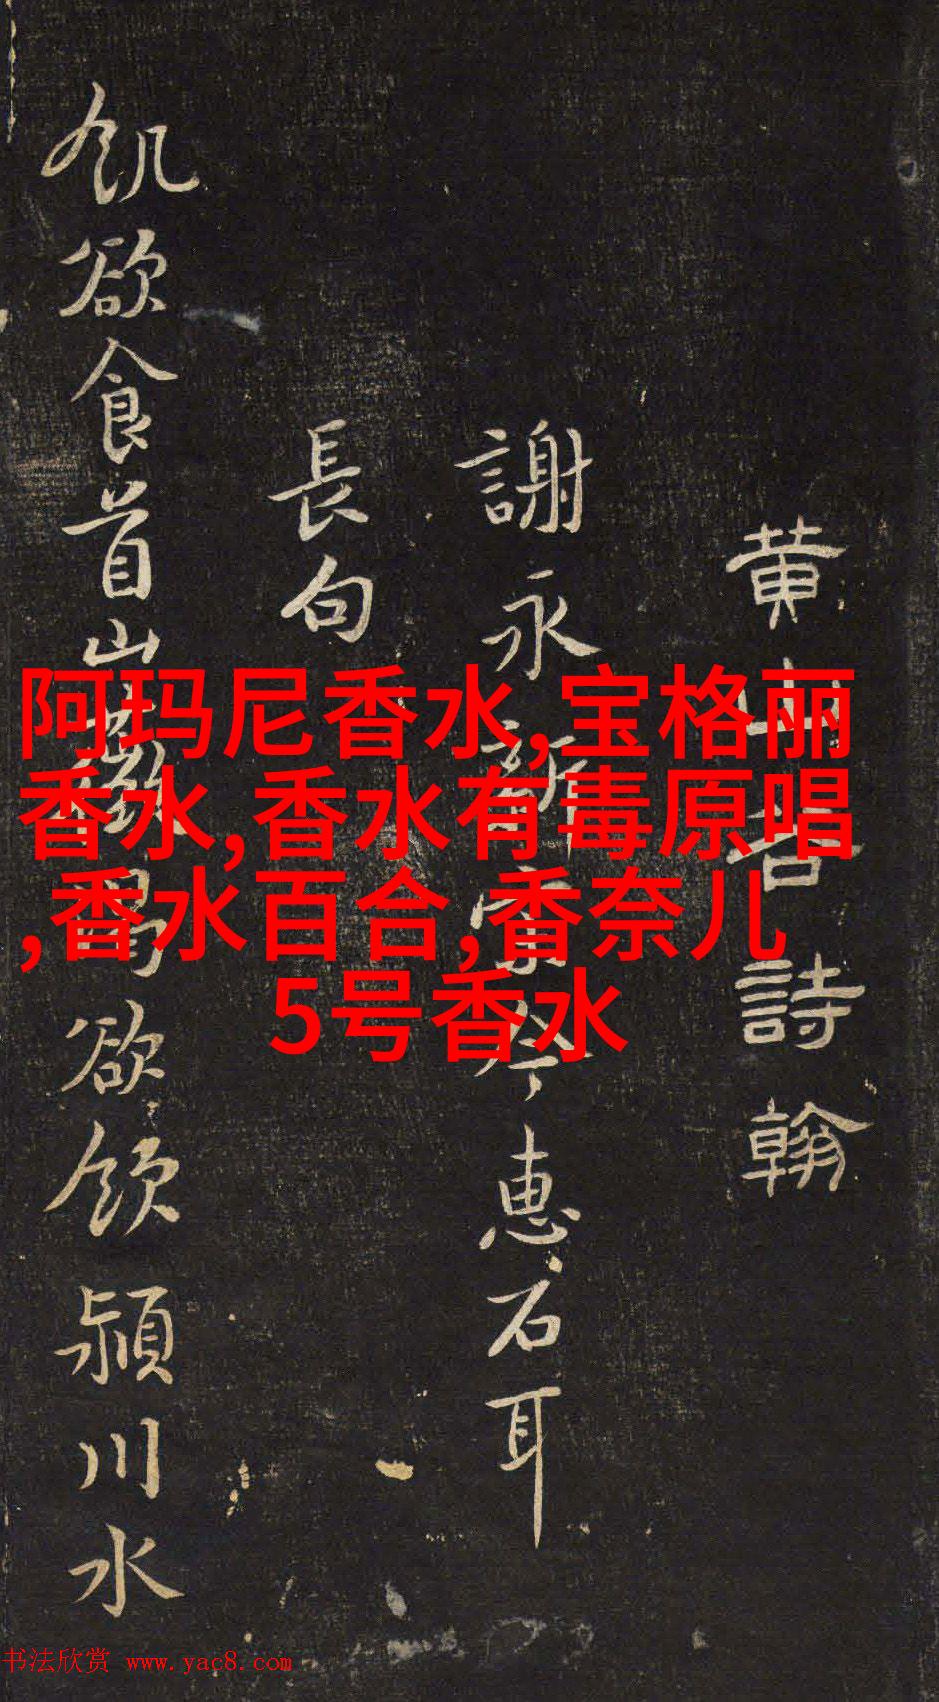 黄山谷詩翰
謝永新宗令惠石耳
長句
飢欲食首山薇渴欲飲潁川水
阿玛尼香水,宝格丽
香水,香水有毒原唱
,香水百合,香奈儿
5号香水
书法欣赏 www.yac8.com